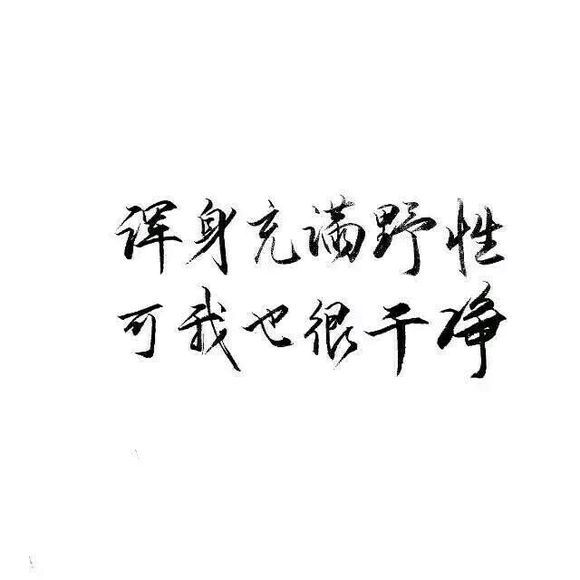 浑身充满野性
可我也很干净